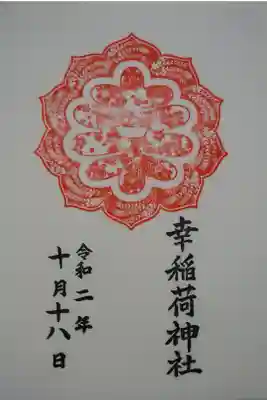 幸稲荷神社
令和二年
十月十八日